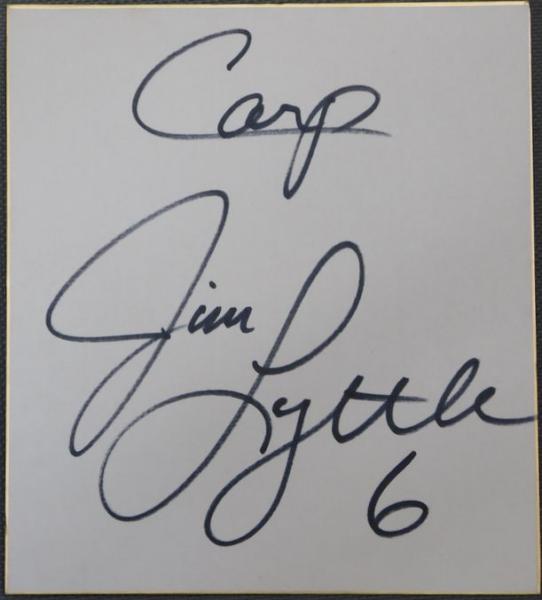 Carp
Jim
Lyttle
6